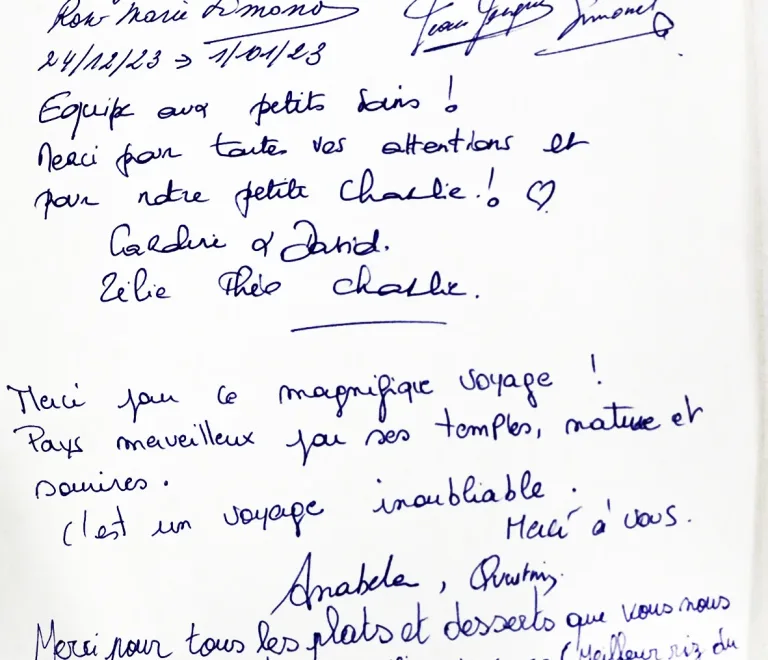 Rose Marie Simono Jean Jacques Simonet
24/12/23 → 1/01/23
Equipe aux petits soins !
Merci pour toutes vos attentions et
pour notre petite Charlie ! ♡
& David.
Zélie Théo Charlie.
Merci pour ce magnifique voyage !
Pays merveilleux par ses temples, nature et
sourires.
C'est un voyage inoubliable.
Merci à vous.
Anabela,
Merci pour tous les plats et desserts que vous nous
(Meilleur riz du